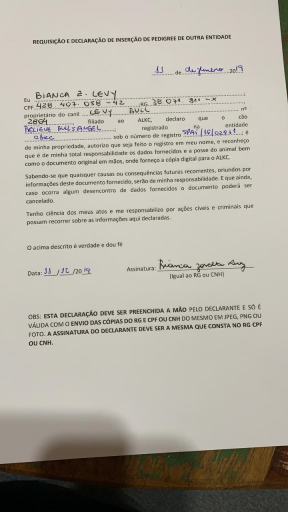 REQUISIÇÃO E DECLARAÇÃO DE INSERÇÃO DE PEDIGREE DE OUTRA ENTIDADE
11 de de 2019
Eu BIANCA Z. LEVY
CPF 428 407 058 - 42 RG 38 071 - X
proprietário do canil LEVY nº
2864 filiado ao ALKC, declaro que o cão
registrado na entidade
cbkc sob o número de registro e
de minha propriedade, autorizo que seja feito o registro em meu nome, e reconheço
que é de minha total responsabilidade os dados fornecidos e a posse do animal bem
como o documento original em mãos, onde forneço a cópia digital para o ALKC.
Sabendo-se que quaisquer causas ou consequências futuras recorrentes, oriundos por
informações deste documento fornecido, serão de minha responsabilidade. E que ainda,
caso ocorra algum desencontro de dados fornecidos o documento poderá ser
cancelado.
Tenho ciência dos meus atos e me responsabilizo por ações cíveis e criminais que
possam recorrer sobre as informações aqui declaradas.
O acima descrito é verdade e dou fé
Data: 11 / 12 /2019 Assinatura:
(Igual ao RG ou CNH)
OBS: ESTA DECLARAÇÃO DEVE SER PREENCHIDA A MÃO PELO DECLARANTE E SÓ É
VÁLIDA COM O ENVIO DAS CÓPIAS DO RG E CPF OU CNH DO MESMO EM JPEG, PNG OU
FOTO. A ASSINATURA DO DECLARANTE DEVE SER A MESMA QUE CONSTA NO RG CPF
OU CNH.